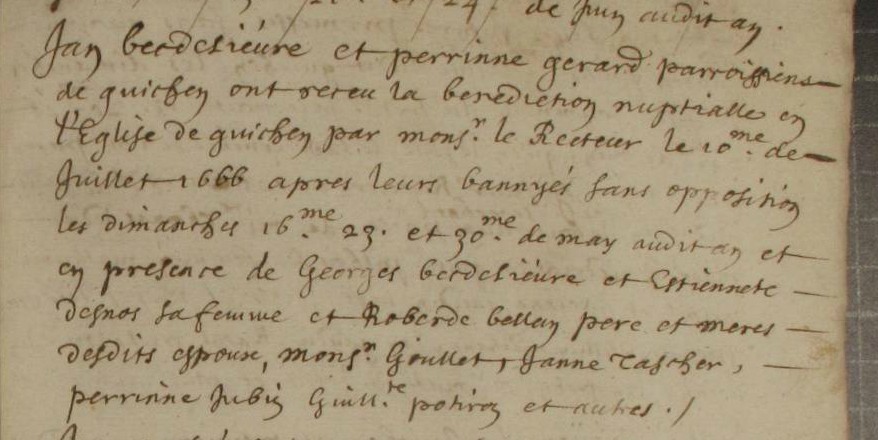 de Jun audit an.
Jan becdelieure et perrinne gerard parroissiens
de guichen ont receu la benediction nuptialle en
l'Eglise de guichen par mons.r le Recteur le 10.me de
Juillet 1666 apres leurs bannyés sans opposition
les dimanches 16.me 23. et 30.me de may audit an et
en presence de Georges becdelieure et Estiennete
desnos sa femme et Roberde bellan pere et meres
desdits espoux, mons.r Goullet, Janne Tascher,
perrinne Jubin Guill.te potiron et autres ./